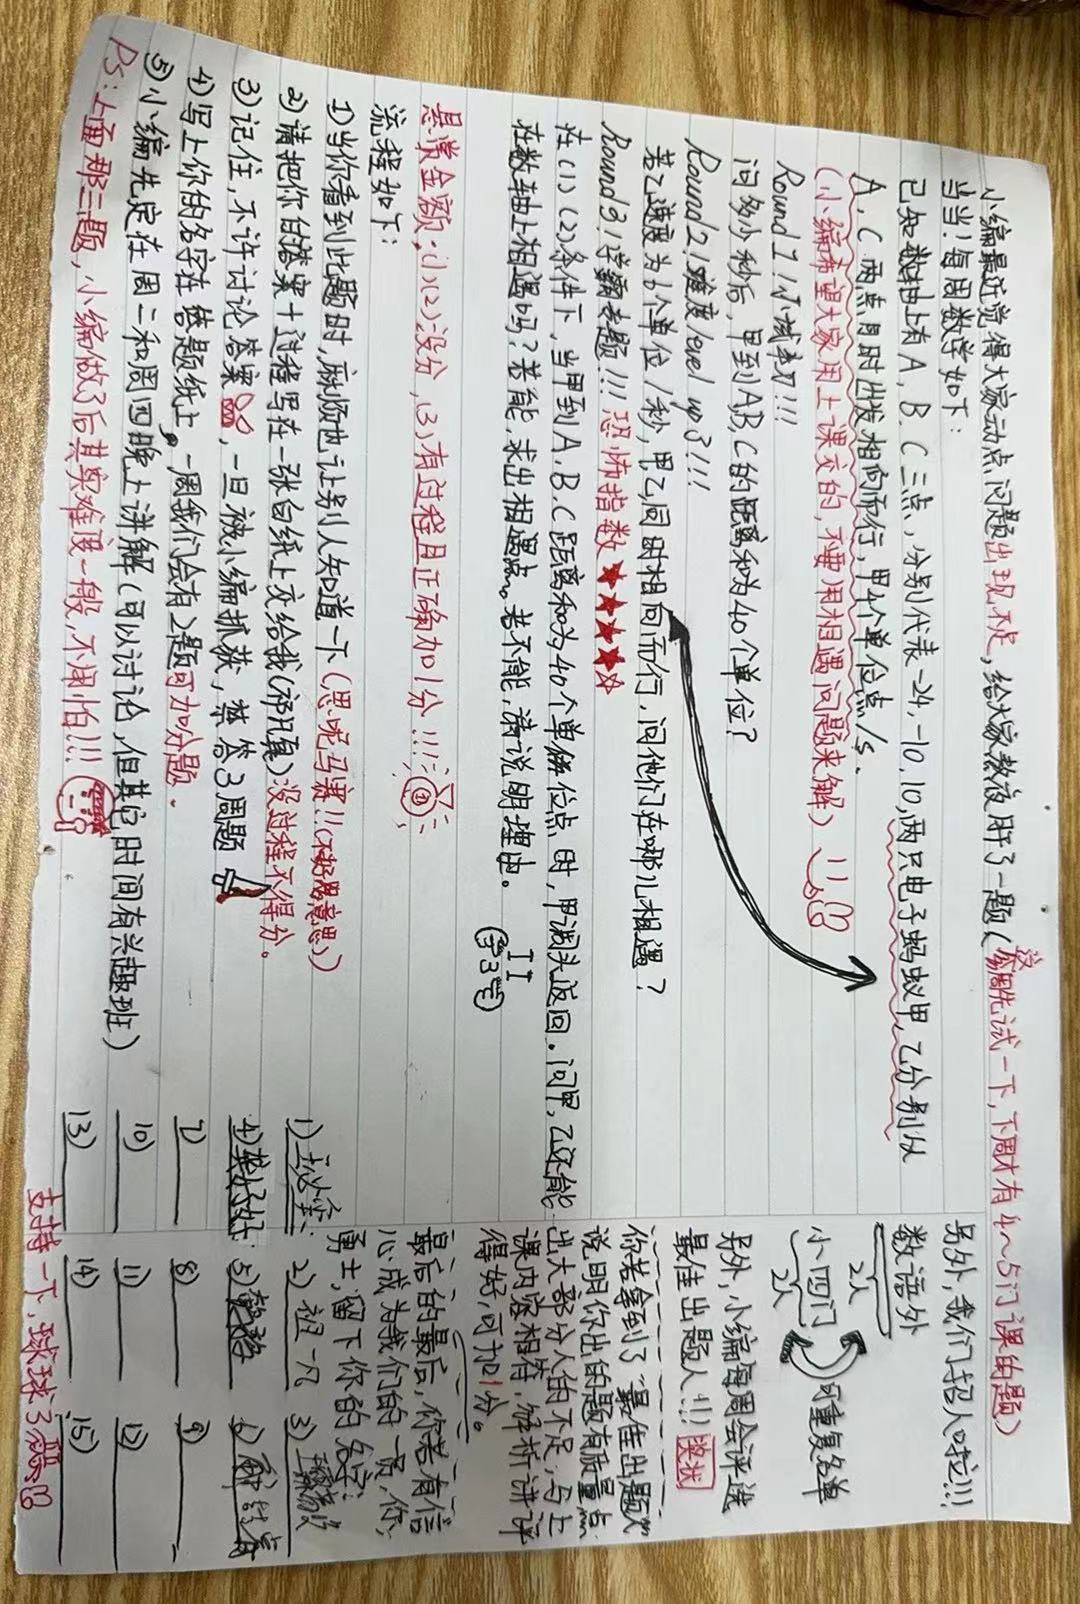 小编最近觉得大家动点问题出现不足,给大家熬夜肝了一题(这周先试一下,下周才有4~5门课的题)
当当!每周数学如下:
已知数轴上有A、B、C三点,分别代表-24,-10,10,两只电子蚂蚁甲、乙分别从
A、C两点同时出发相向而行,甲4个单位点/s.
(小编希望大家用上课交的,不要用相遇问题来解)
Round 1!小试牛刀!!!
问多少秒后,甲到A,B,C的距离和为40个单位?
Round 2!难度level up 3!!!
若乙速度为6个单位/秒,甲乙同时相向而行,问他们在哪儿相遇?
Round 3!学霸专题!!!恐怖指数★★★★☆
在(1)(2)条件下,当甲到A、B、C距离和为40个单位点时,甲调头返回。问甲,乙还能
在数轴上相遇吗?若能,求出相遇点。若不能,请说明理由。
悬赏金额:(1)(2)没分,(3)有过程且正确加1分!!!
流程如下:
①当你看到此题时,麻烦也让别人知道一下(思呢马赛!!(不好意思))
②请把你的答案+过程写在一张白纸上交给我 没过程不得分。
③记住,不许讨论答案,一旦被小编抓获,禁答3周题
④写上你的名字在答题纸上,一周我们会有2题可加分题.
⑤小编先定在周二和周四晚上讲解(可以讨论,但其它时间有兴趣班)
PS:上面那三题,小编做了后其实难度一般,不用怕!!!
另外,我们招人啦!!!
数语外
2人
小四门
2人
可重复名单
另外,小编每周会评选
最佳出题人!!!奖状
你若拿到了“最佳出题人”
说明你出的题有质量点
出大部分人的不足,与上
课内容相符,解析讲评
得好,可加1分。
最后的最后,你若有信
心成为我们的一员,你,
勇士,留下你的名字:
1)
2)祖一凡
3)
4)
5)
6)
7)
8)
9)
10)
11)
12)
13)
14)
15)
支持一下,球球了